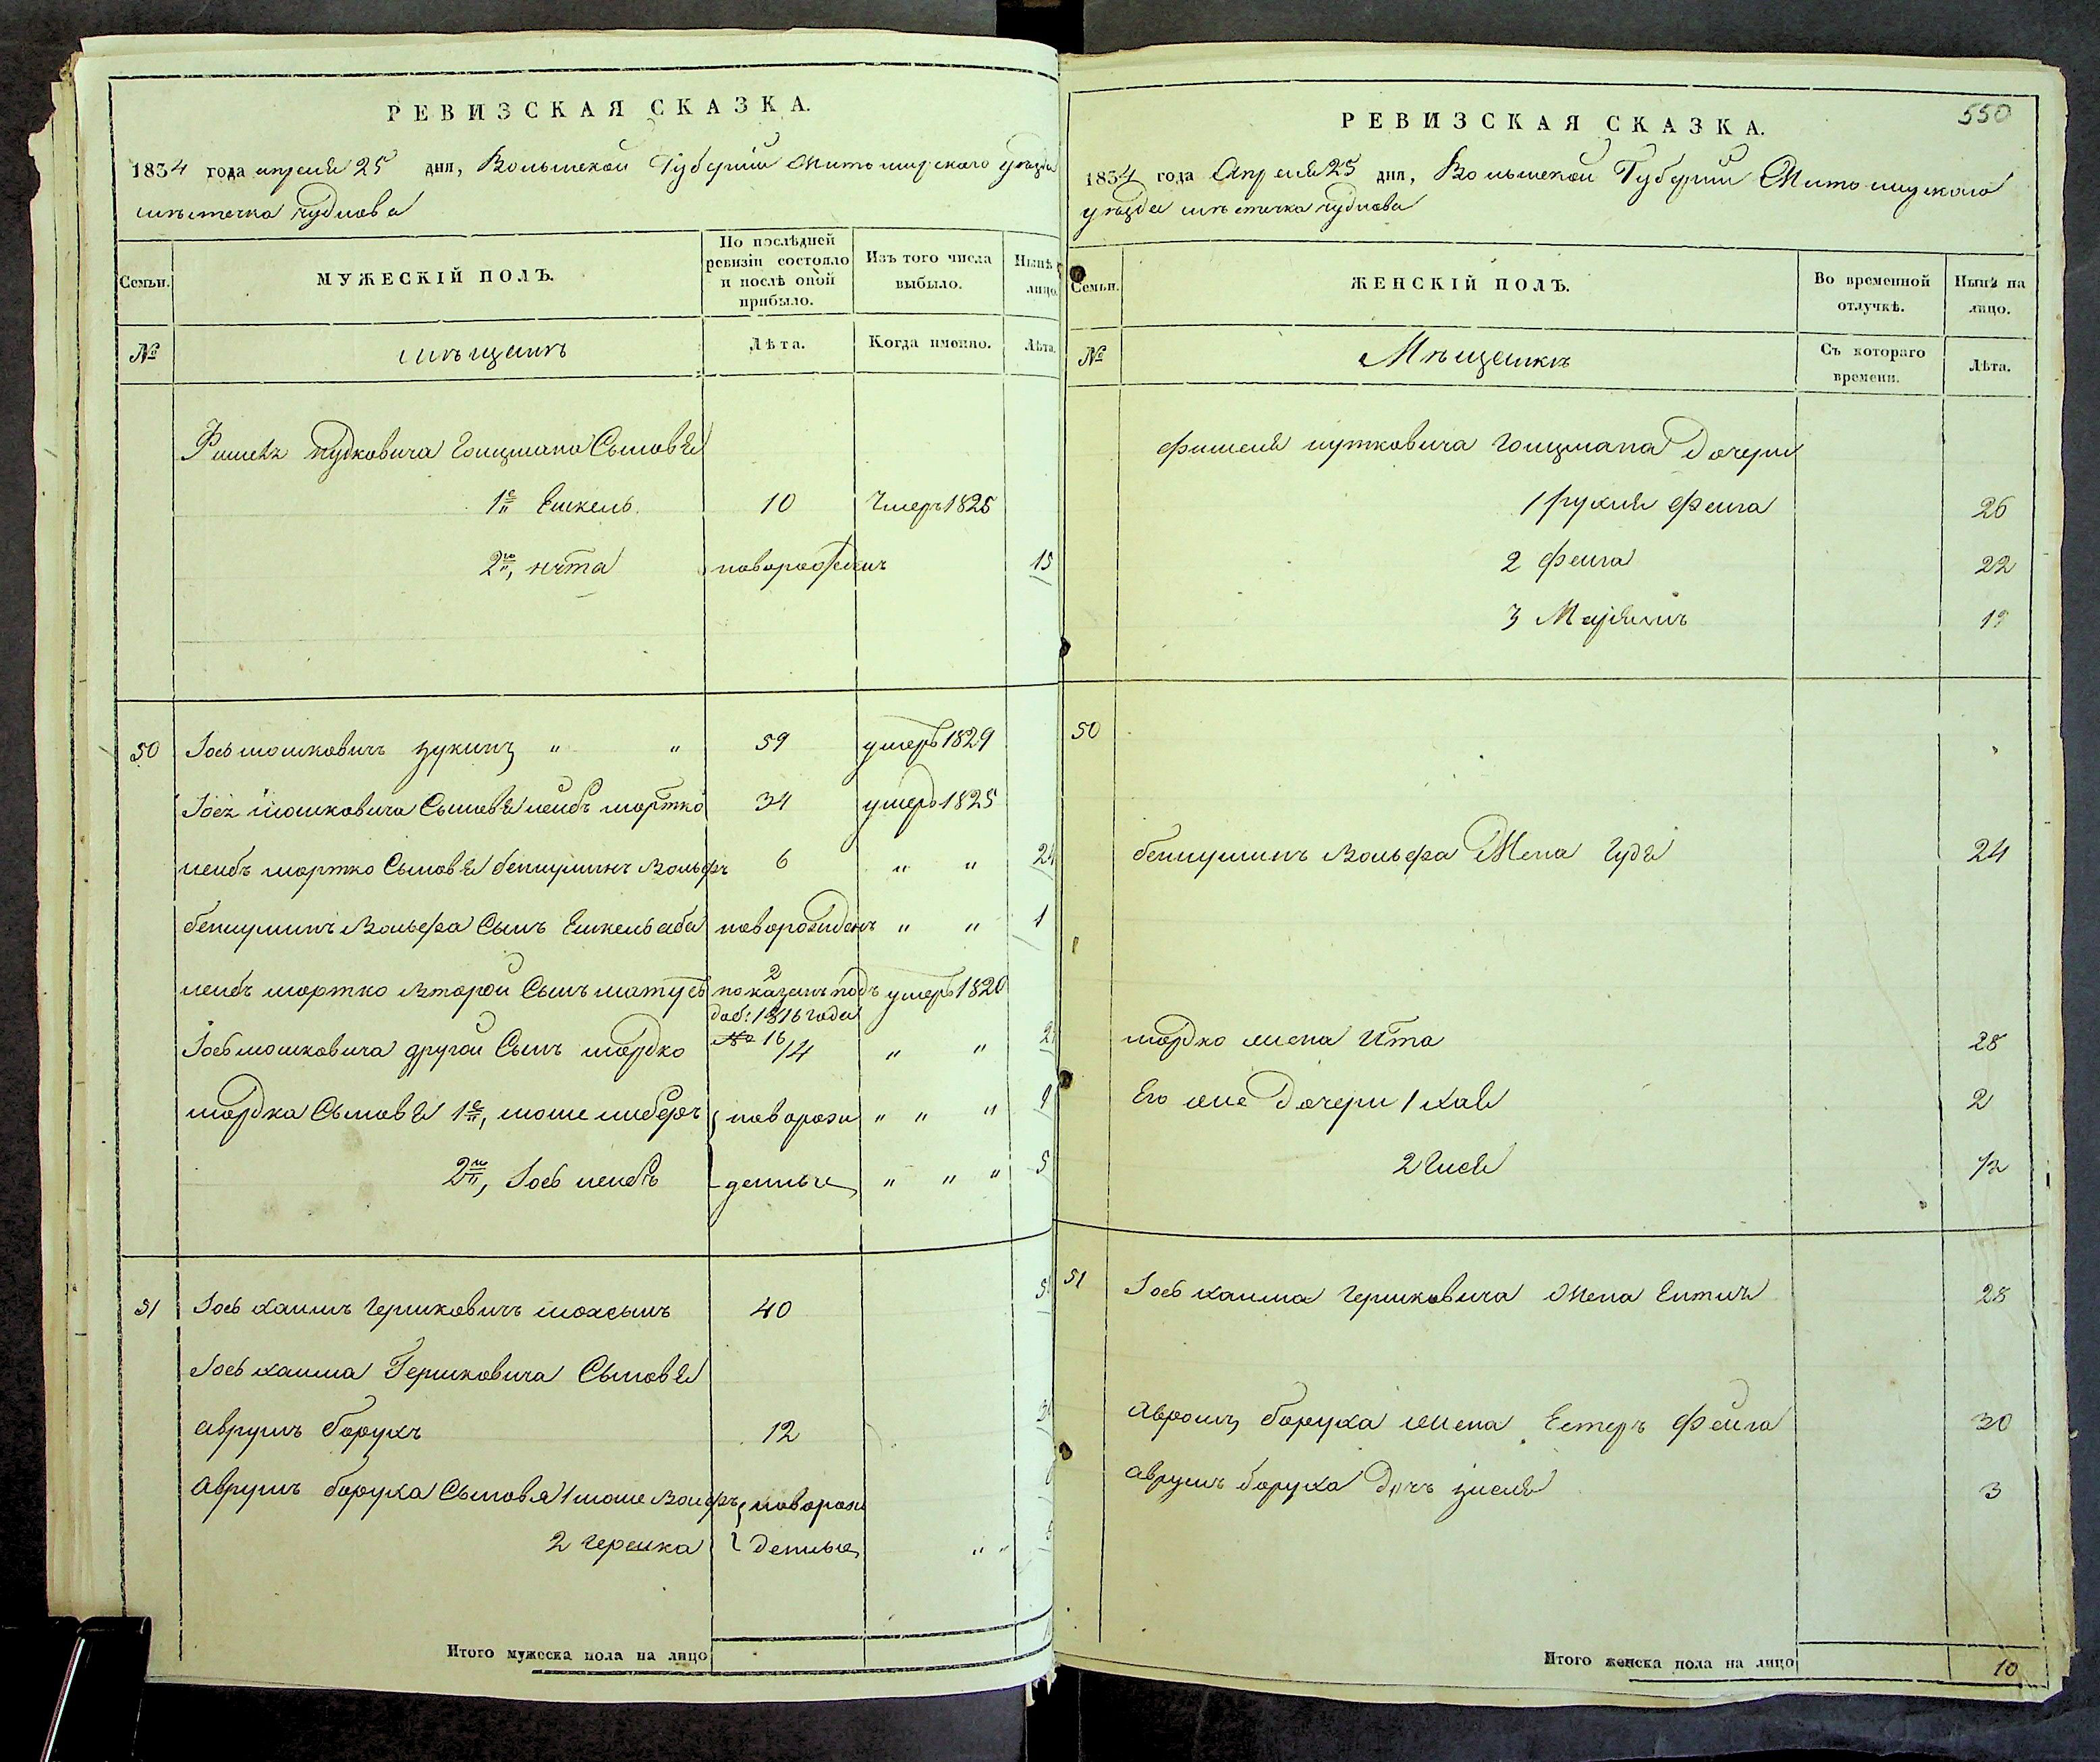 РЕВИЗСКАЯ СКАЗКА.
1834 года апреля 25 дня, Волынской Губернии Житомирского уезда
мѣстечка чуднова
Семьи.
МУЖЕСКІЙ ПОЛЪ.
По послѣдней ревизіи состояло и послѣ оной прибыло.
Изъ того числа выбыло.
Нынѣ
лицо.
№
мѣщанъ
Лѣта.
Когда именно.
Лѣта.
Сыновя
1е Ешкель 10 Умеръ 1825
2й, новорожденъ 15
50 Іось мошковичъ зукинъ " " 59 умеръ 1829
Іося мошковича Сыновя лейбъ мортко 34 умеръ 1825
лейбъ мортко Сыновя бенуминъ Вольфъ 6 " " 24
бенуминъ Вольфа Сынъ Ешкель аба новорожденъ " " 1
лейбъ мортко второй Сынъ матусъ 2 показанъ подъ умеръ 1820
доб: 1816 года
№ 16
Іось мошковича другой Сынъ мордко 14 " "
мордка Сыновя 1е, моше новорож " " "
2й, Іось лейбъ денные " " " 5
51 Іось хаимъ Гершковичъ 40
Іось хаима Гершковича Сыновя
аврумъ борухъ 12
аврумъ боруха Сыновя 1 моше Вольфъ новорож
2 гершка денные " "
Итого мужеска пола на лицо
РЕВИЗСКАЯ СКАЗКА.
550
1834 года Апреля 25 дня, Волынской Губернии Житомирского
уезда мѣстечка чуднова
Семьи.
ЖЕНСКІЙ ПОЛЪ.
Во временной отлучкѣ.
Нынѣ на лицо.
№
Мѣщанкъ
Съ котораго времени.
Лѣта.
фишеля Дочери
1 рухля Фейга 26
2 фейга 22
3 Марьямъ 19
50
бенуминъ Вольфа Жена Гудя 24
мордко жена Ита 28
Его же Дочери 1 хая 2
2 1/2
51 Іось хаима Гершковича Жена Ентля 28
Авромъ боруха жена Естеръ Фейга 30
аврумъ боруха Дочь зисля 3
Итого женска пола на лицо 10